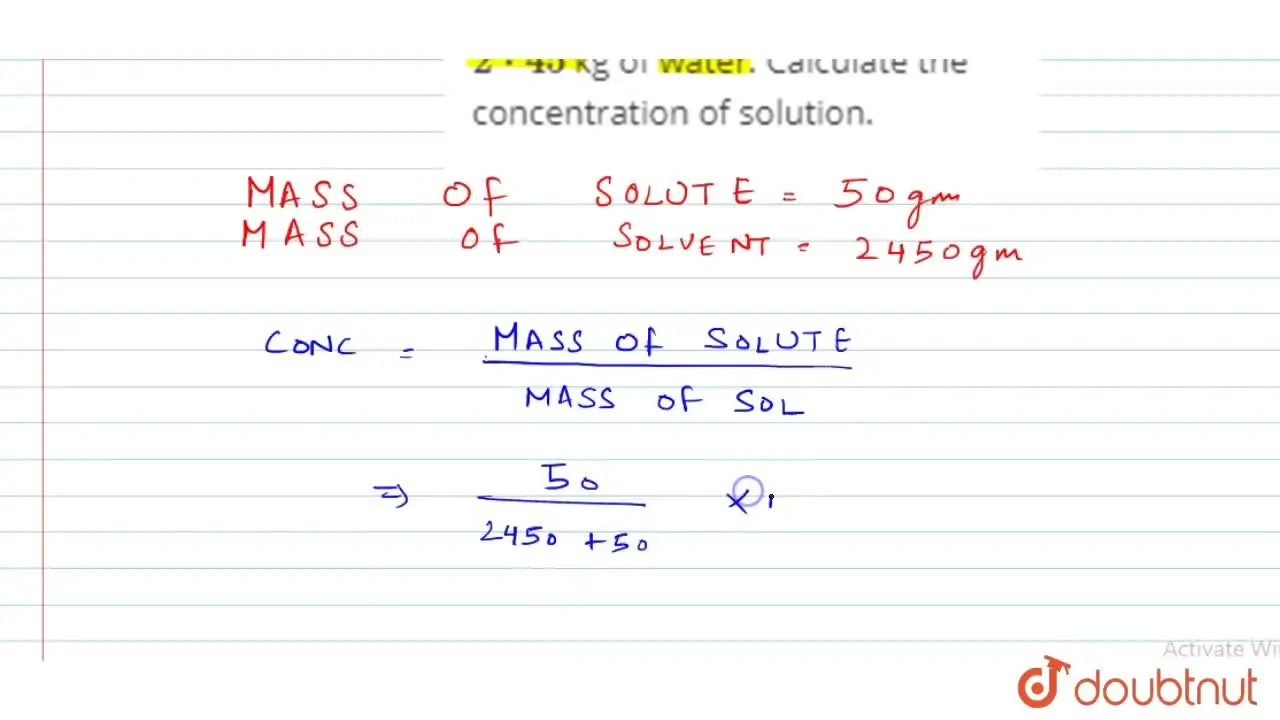 2·45 kg of water. Calculate the
concentration of solution.
MASS OF SOLUTE = 50gm
MASS OF SOLVENT = 2450gm
CONC = MASS OF SOLUTE
MASS OF SOL
⇒ 50
2450 + 50
× 1
Activate Wi
doubtnut